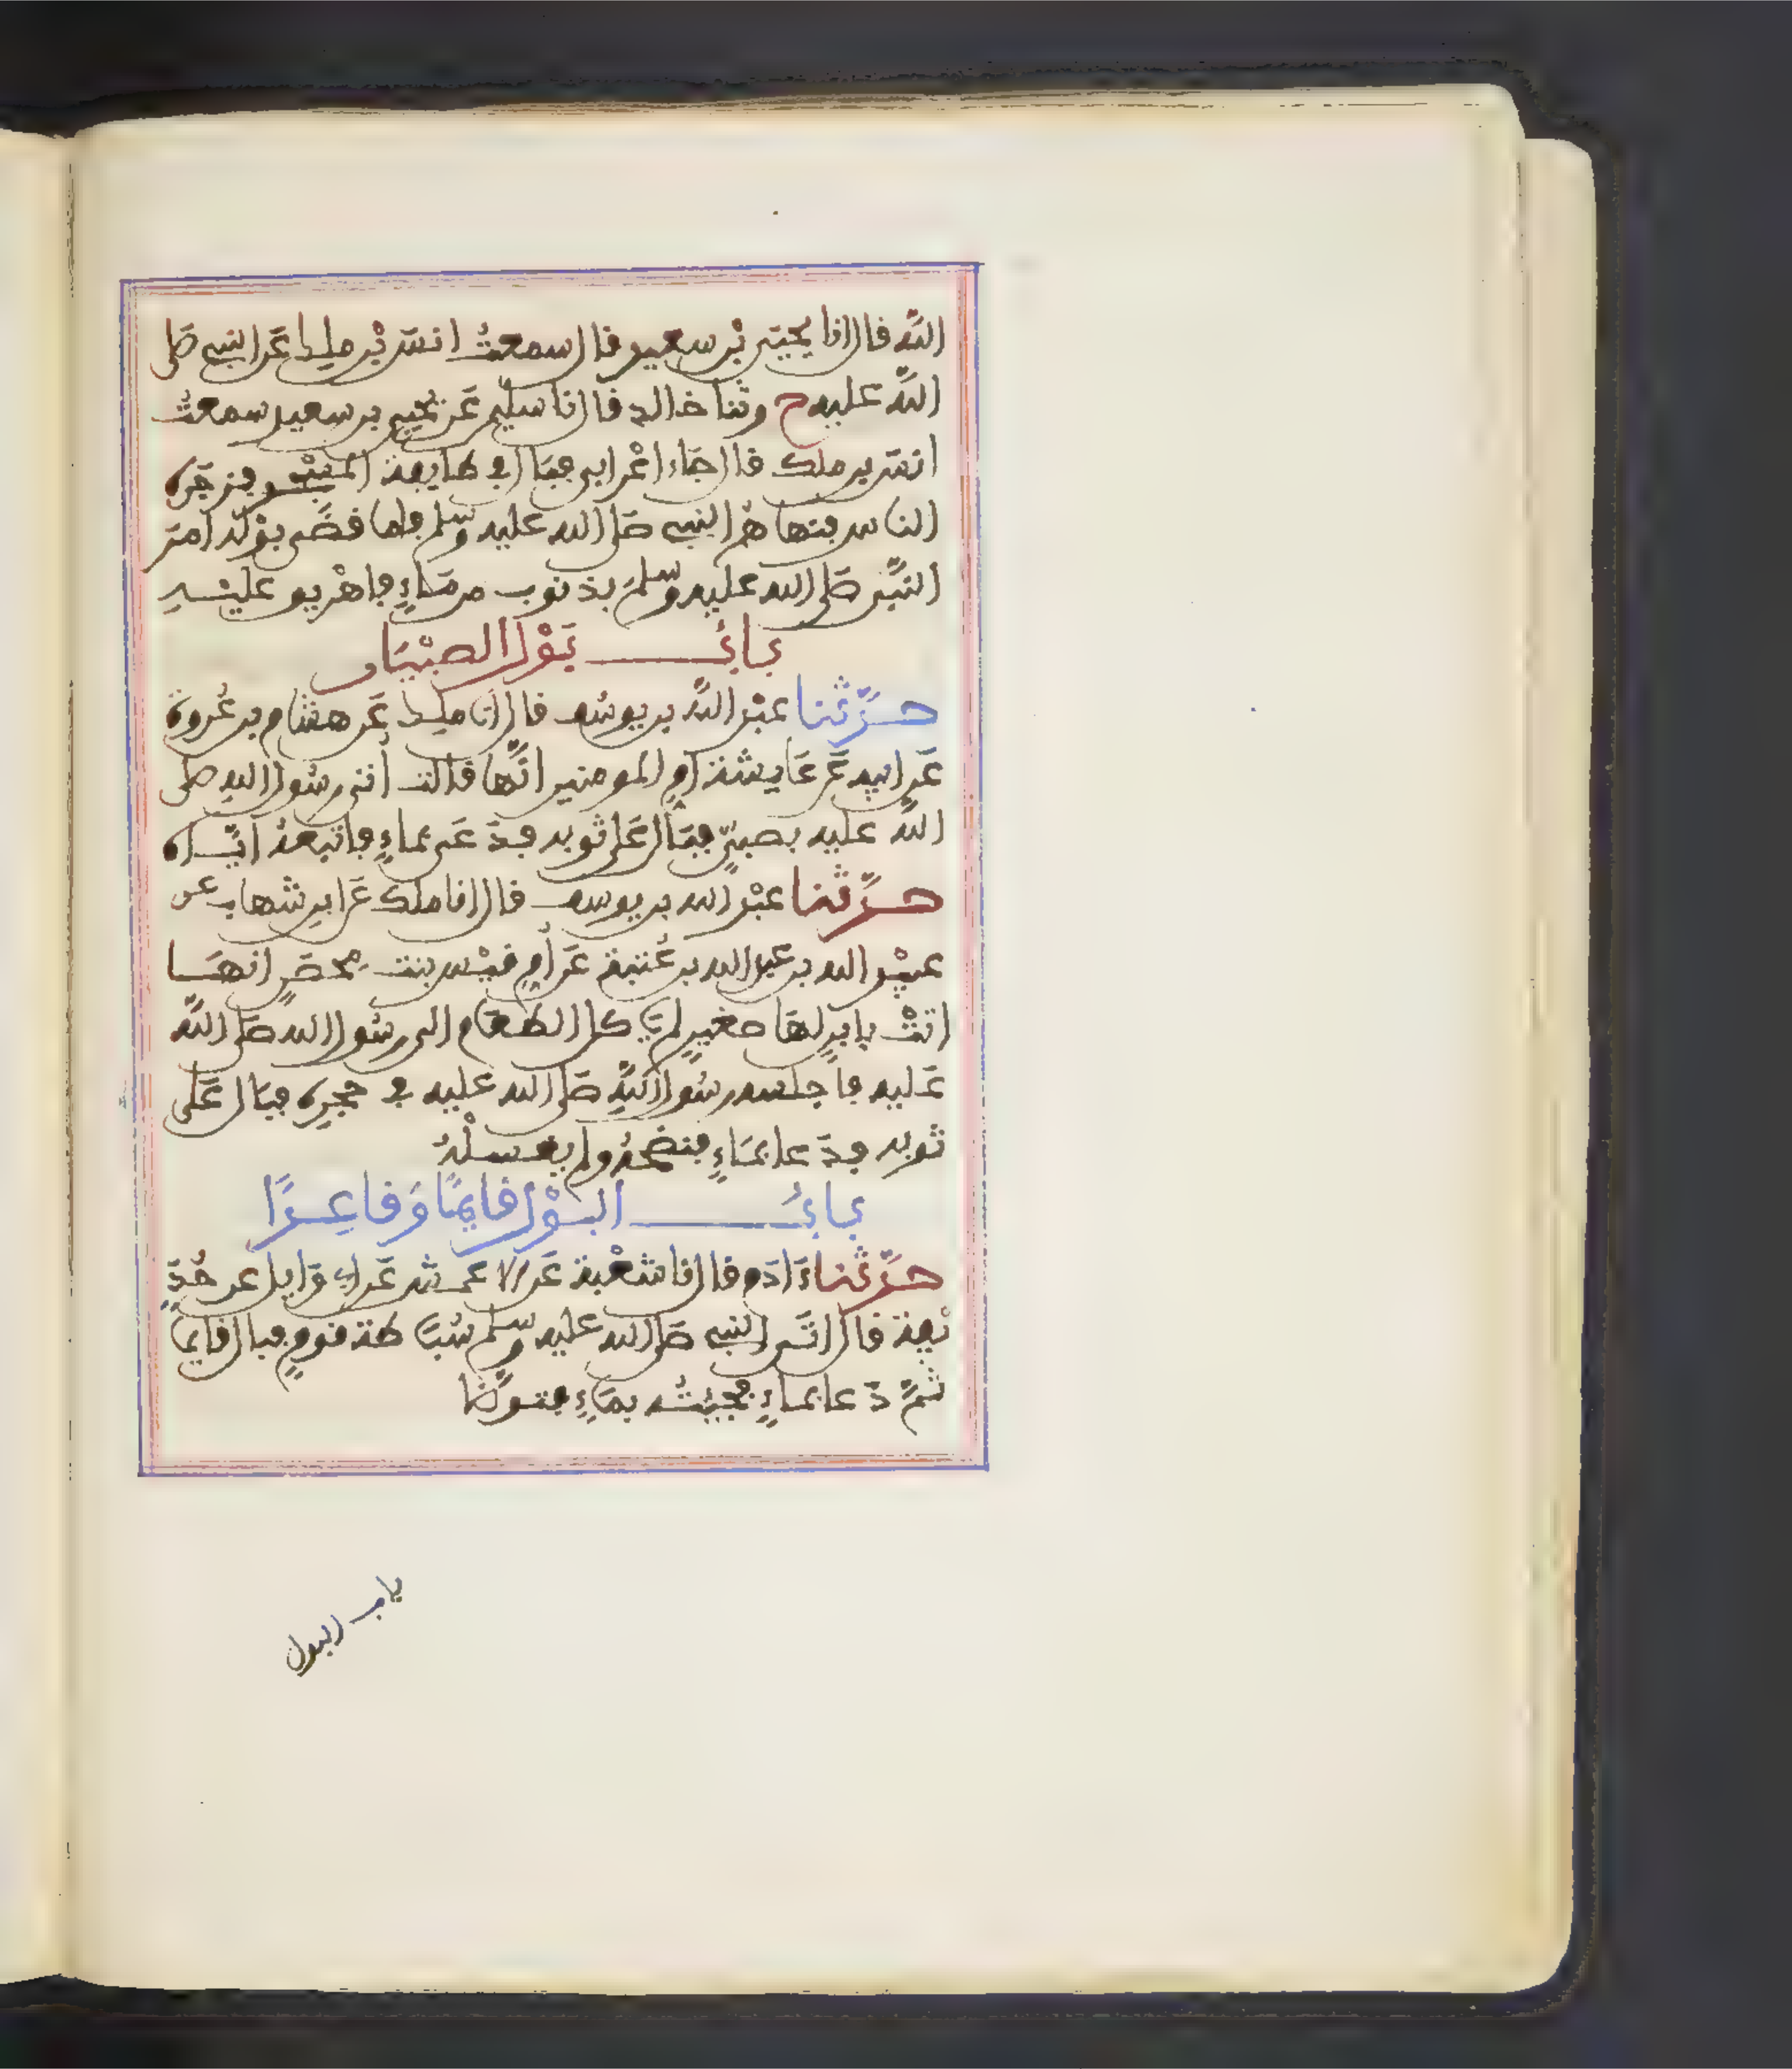 الله قال انا يحيى بن سعيد قال سمعت انس بن ملك عن النبي صلى
الله عليه ح وثنا خالد قال نا سليمن عن يحيى بن سعيد سمعت
انس بن ملك قال جاء اعرابي فبال في طايفة المسجد فزجره
الناس فنهاهم النبي صلى الله عليه وسلم فلما قضى بوله امر
النبي صلى الله عليه وسلم بذنوب من ماء فاهريق عليه
باب بول الصبيان
حدثنا عبد الله بن يوسف قال انا ملك عن هشام بن عروة
عن ابيه عن عايشة ام المومنين انها قالت أتي رسول الله صلى
الله عليه بصبي فبال على ثوبه فدعى بماء فاتبعه اياه
حدثنا عبد الله بن يوسف قال انا ملك عن ابن شهاب عن
عبيد الله بن عبد الله بن عتبة عن أم قيس بنت محصن انها
اتت بابن لها صغير لم ياكل الطعام الى رسول الله صلى الله
عليه فاجلسه رسول الله صلى الله عليه في حجره فبال على
ثوبه فدعا بماء فنضحه ولم يغسله
باب البول قايما وقاعدا
حدثنا ءادم قال نا شعبة عن الاعمش عن ابي وايل عن حذ
يفة قال اتى النبي صلى الله عليه وسلم سباطة قوم فبال قايما
ثم دعا بماء فجيته بماء فتوضا
باب البول